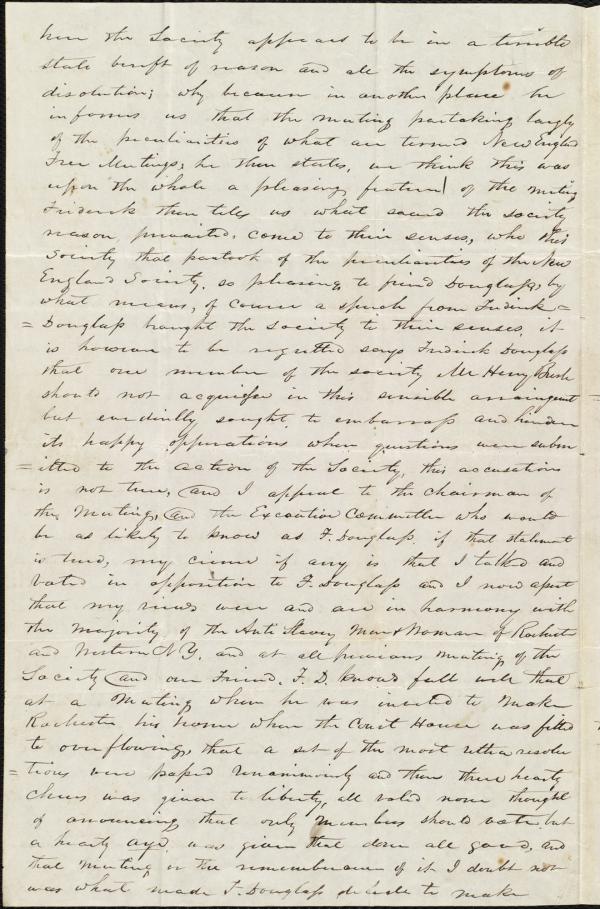 here the Society appears to be in a terrible
state bereft of reason and all the symptoms of
disolution; why because in another place he
informs us that the meeting partaking largly
of the peculiarities of what are termed New England
Free Meetings, he then states, we think this was
upon the whole a pleasing feature of the meeting
Fridrick then tells us what saved the society
reason prevailed. came to their senses, who this
Society that partook of the peculiarities of the New
England Society, so pleasing to friend Douglass, by
what means, of course a speech from Fridrick =
= Douglass braught the society to their senses, it
is however to be regretted says Fridrick Douglass
that one member of the society Mr Henry Bush
should not acquiese in this sensible arraingment
but evedintly sought to embarrass and hinder
its happy opperations when questions were subm
= itted to the action of the Society, this accusation
is not true, and I appeal to the Chairman of
the Meeting, and the Excautive Committee who would
be as likely to know as F. Douglass. if that statement
is true, my crime if any is that I talked and
voted in opposition to F. Douglass and I now
that my views were and are in harmony with
the Majority of the Anti Slavery Men & Woman of Rochester
and Western N Y. and at all previous meetings of the
Society and our Friend. F. D. knows full well that
at a Meeting when he was invited to make
Rochester his home when the Court House was filled
to overflowing, that a set of the most ultra resolu
= tions were passed unanimously and then three hearty
cheers was given to liberty, all voted none thought
of anouncing that only members should vote but
a hearty aye was given that done all good, and
that meeting or the remembrance of it I doubt not
was what made F. Douglass decide to make